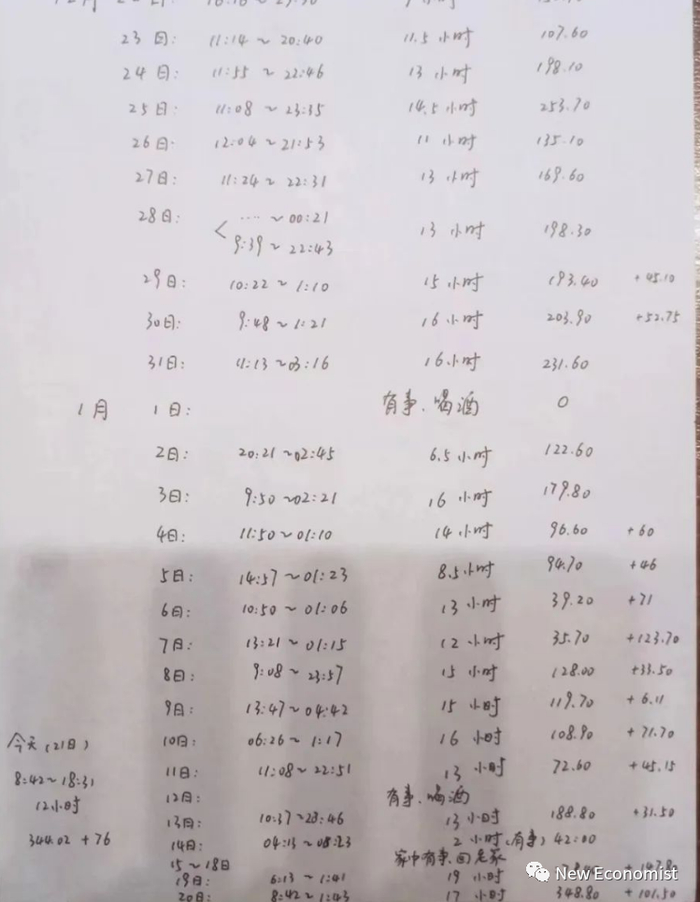 23日: 11:14~20:40 11.5小时 107.60
24日: 11:55~22:46 13小时 198.10
25日: 11:08~23:35 14.5小时 253.70
26日: 12:04~21:53 11小时 135.10
27日: 11:24~22:31 13小时 169.60
28日: < ....~00:21
9:39~22:43 13小时 198.30
29日: 10:22~1:10 15小时 193.40 +45.10
30日: 9:48~1:21 16小时 203.90 +52.75
31日: 11:13~03:16 16小时 231.60
1月 1日: 有事、喝酒 0
2日: 20:21~02:45 6.5小时 122.60
3日: 9:50~02:21 16小时 179.80
4日: 11:50~01:10 14小时 96.60 +60
5日: 14:57~01:23 8.5小时 94.70 +46
6日: 10:50~01:06 13小时 39.20 +71
7日: 13:21~01:15 12小时 35.70 +123.70
8日: 9:08~23:57 15小时 128.00 +33.50
9日: 13:47~04:42 15小时 119.70 +6.11
10日: 06:26~1:17 16小时 108.90 +71.70
11日: 11:08~22:51 13小时 72.60 +45.15
12日: 有事、喝酒
13日: 10:37~23:46 13小时 188.80 +31.50
14日: 04:13~08:23 2小时(有事) 42.00
15~18日 家中有事、回老家
19日: 6:13~1:41 19小时
20日: 8:42~1:43 17小时 348.80 +101.50
今天(21日)
8:42~18:31
12小时
344.02 +76
New Economist